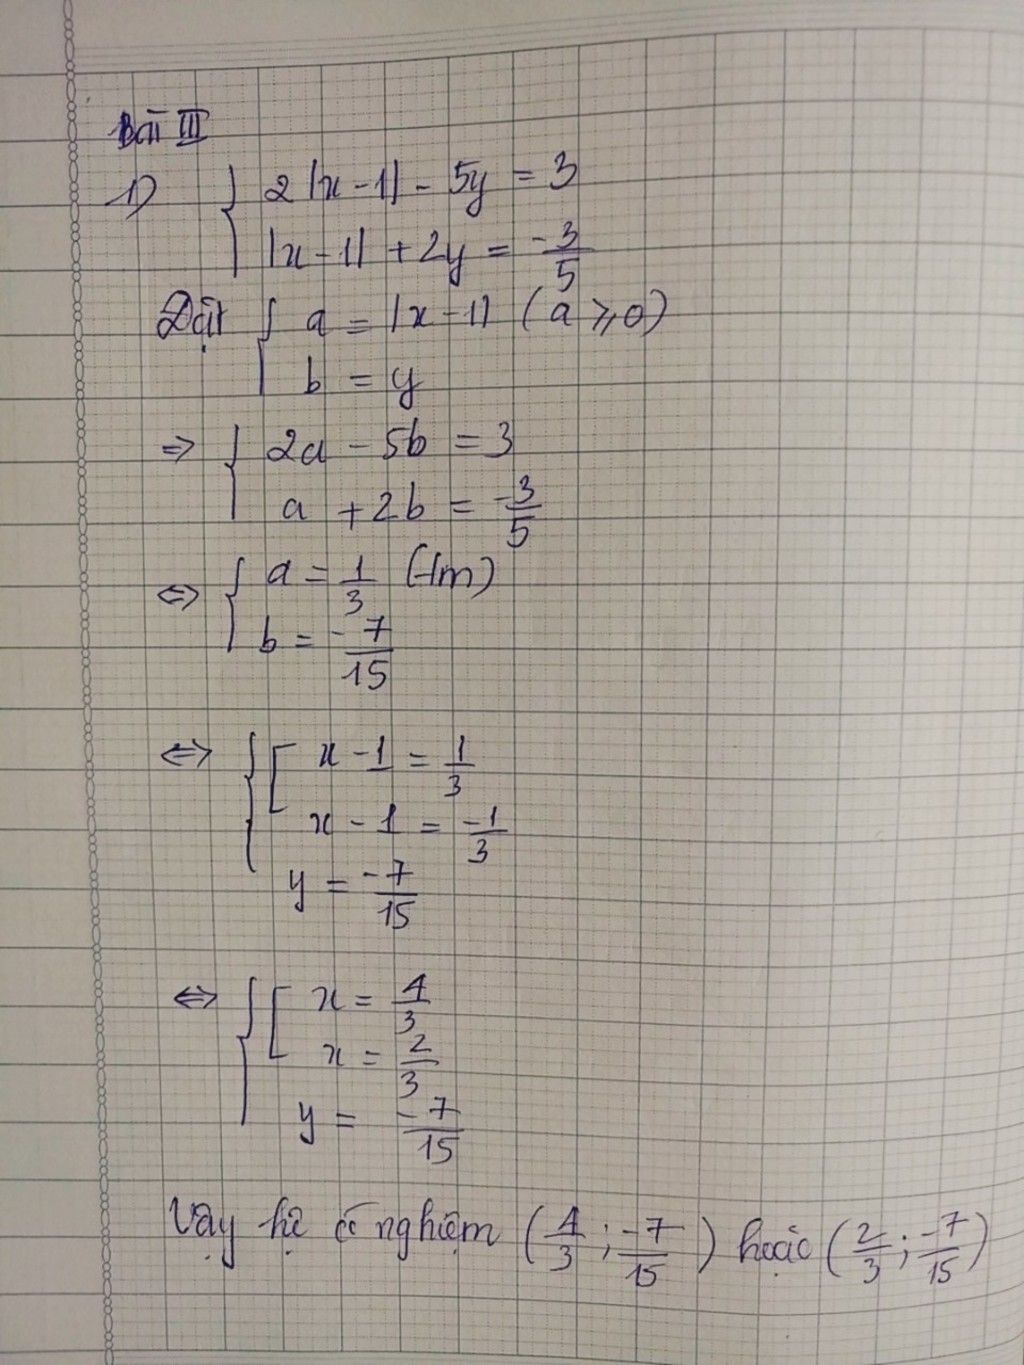 Bài III
1) { 2|x-1| - 5y = 3
|x-1| + 2y = -3/5
Đặt { a = |x-1| (a ⩾ 0)
b = y
⇒ { 2a - 5b = 3
a + 2b = -3/5
⇔ { a = 1/3 (tm)
b = -7/15
⇔ { [ x - 1 = 1/3
x - 1 = -1/3
y = -7/15
⇔ { [ x = 4/3
x = 2/3
y = -7/15
Vậy hệ có nghiệm (4/3 ; -7/15) hoặc (2/3 ; -7/15)